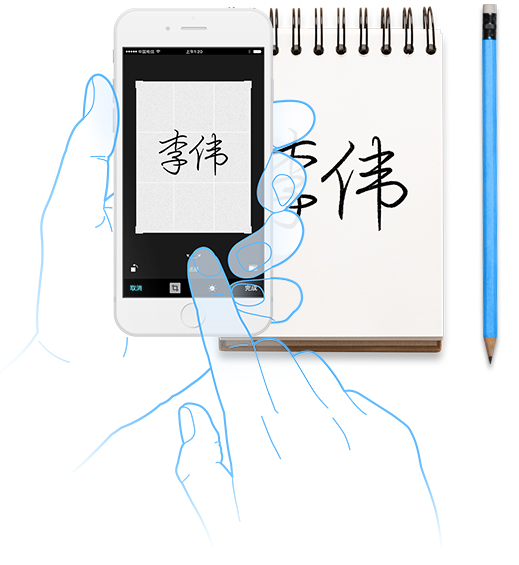 中国电信 上午1:20
李伟
取消 完成
李伟